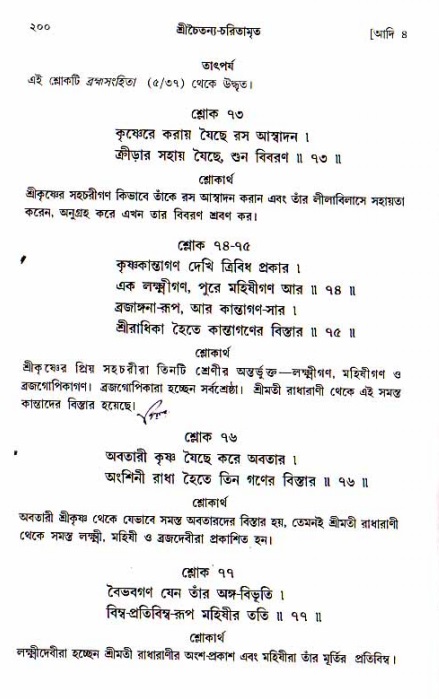 ২০০ শ্রীচৈতন্য-চরিতামৃত [আদি ৪
তাৎপর্য
এই শ্লোকটি ব্রহ্মসংহিতা (৫/৩৭) থেকে উদ্ধৃত।
শ্লোক ৭৩
কৃষ্ণেরে করায় যৈছে রস আস্বাদন ।
ক্রীড়ার সহায় যৈছে, শুন বিবরণ ॥ ৭৩ ॥
শ্লোকার্থ
শ্রীকৃষ্ণের সহচরীগণ কিভাবে তাঁকে রস আস্বাদন করান এবং তাঁর লীলাবিলাসে সহায়তা
করেন, অনুগ্রহ করে এখন তার বিবরণ শ্রবণ কর।
শ্লোক ৭৪-৭৫
কৃষ্ণকান্তাগণ দেখি ত্রিবিধ প্রকার ।
এক লক্ষ্মীগণ, পুরে মহিষীগণ আর ॥ ৭৪ ॥
ব্রজাঙ্গনা-রূপ, আর কান্তাগণ-সার ।
শ্রীরাধিকা হৈতে কান্তাগণের বিস্তার ॥ ৭৫ ॥
শ্লোকার্থ
শ্রীকৃষ্ণের প্রিয় সহচরীরা তিনটি শ্রেণীর অন্তর্ভুক্ত—লক্ষ্মীগণ, মহিষীগণ ও
ব্রজগোপিকাগণ। ব্রজগোপিকারা হচ্ছেন সর্বশ্রেষ্ঠা। শ্রীমতী রাধারাণী থেকে এই সমস্ত
কান্তাদের বিস্তার হয়েছে।
শ্লোক ৭৬
অবতারী কৃষ্ণ যৈছে করে অবতার ।
অংশিনী রাধা হৈতে তিন গণের বিস্তার ॥ ৭৬ ॥
শ্লোকার্থ
অবতারী শ্রীকৃষ্ণ থেকে যেভাবে সমস্ত অবতারদের বিস্তার হয়, তেমনই শ্রীমতী রাধারাণী
থেকে সমস্ত লক্ষ্মী, মহিষী ও ব্রজদেবীরা প্রকাশিত হন।
শ্লোক ৭৭
বৈভবগণ যেন তাঁর অঙ্গ-বিভূতি ।
বিম্ব-প্রতিবিম্ব-রূপ মহিষীর ততি ॥ ৭৭ ॥
শ্লোকার্থ
লক্ষ্মীদেবীরা হচ্ছেন শ্রীমতী রাধারাণীর অংশ-প্রকাশ এবং মহিষীরা তাঁর মূর্তির প্রতিবিম্ব।